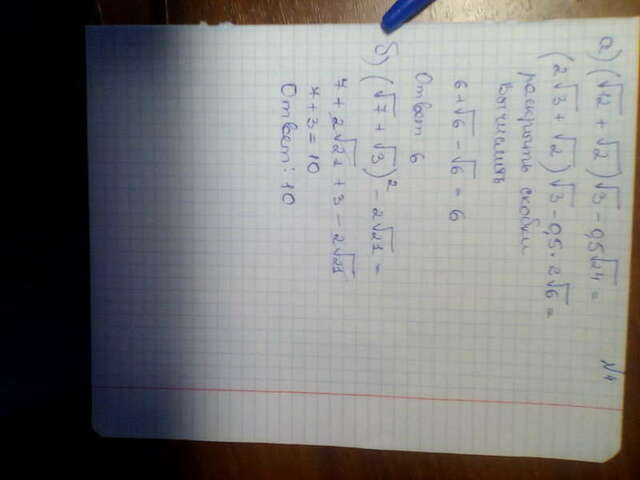 №4
а) (√12 + √2)√3 − 0,5√24 =
(2√3 + √2)√3 − 0,5 · 2√6 =
раскрыть скобки
вычислить
6 + √6 − √6 = 6
Ответ 6
б) (√7 + √3)² − 2√21 =
7 + 2√21 + 3 − 2√21
7 + 3 = 10
Ответ: 10